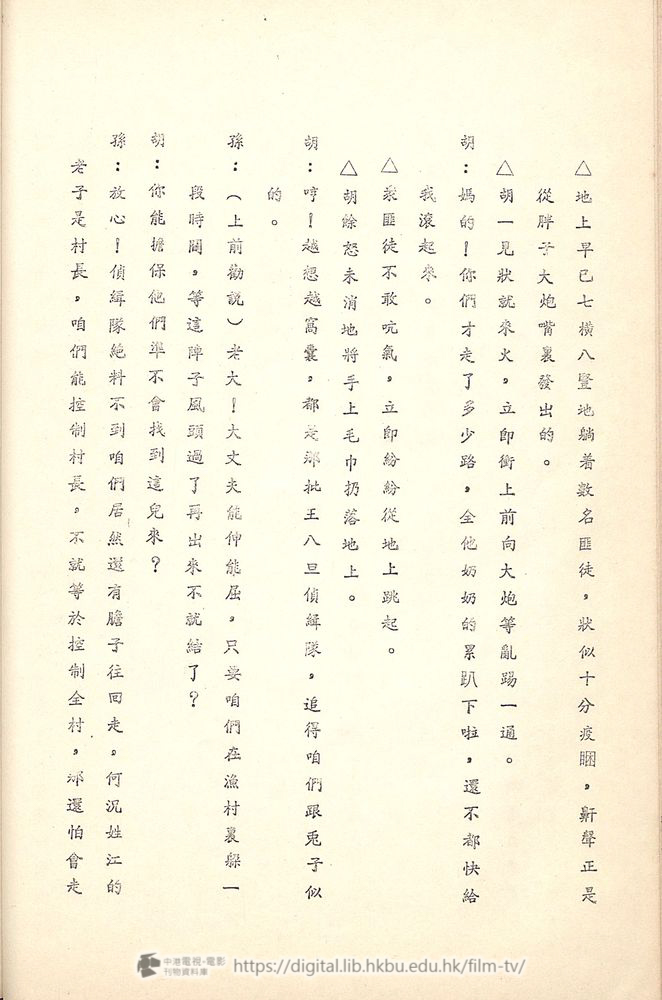 △地上早已七橫八豎地躺着數名匪徒，狀似十分疲睏，鼾聲正是
從胖子大炮嘴裏發出的。
△胡一見狀就來火，立即衝上前向大炮等亂踢一通。
胡：媽的！你們才走了多少路，全他奶奶的累趴下啦，還不都快給
我滾起來。
△衆匪徒不敢吭氣，立即紛紛從地上跳起。
△胡餘怒未消地將手上毛巾扔落地上。
胡：哼！越想越窩囊，都是那批王八旦偵緝隊，追得咱們跟兎子似
的。
孫：（上前勸說）老大！大丈夫能伸能屈，只要咱們在漁村裏躱一
段時間，等這陣子風頭過了再出來不就結了？
胡：你能擔保他們準不會找到這兒來？
孫：放心！偵緝隊絕料不到咱們居然還有膽子往回走，何況姓江的
老子是村長，咱們能控制村長，不就等於控制全村，那還怕會走
中港電視·電影
刊物資料庫
https://digital.lib.hkbu.edu.hk/film-tv/